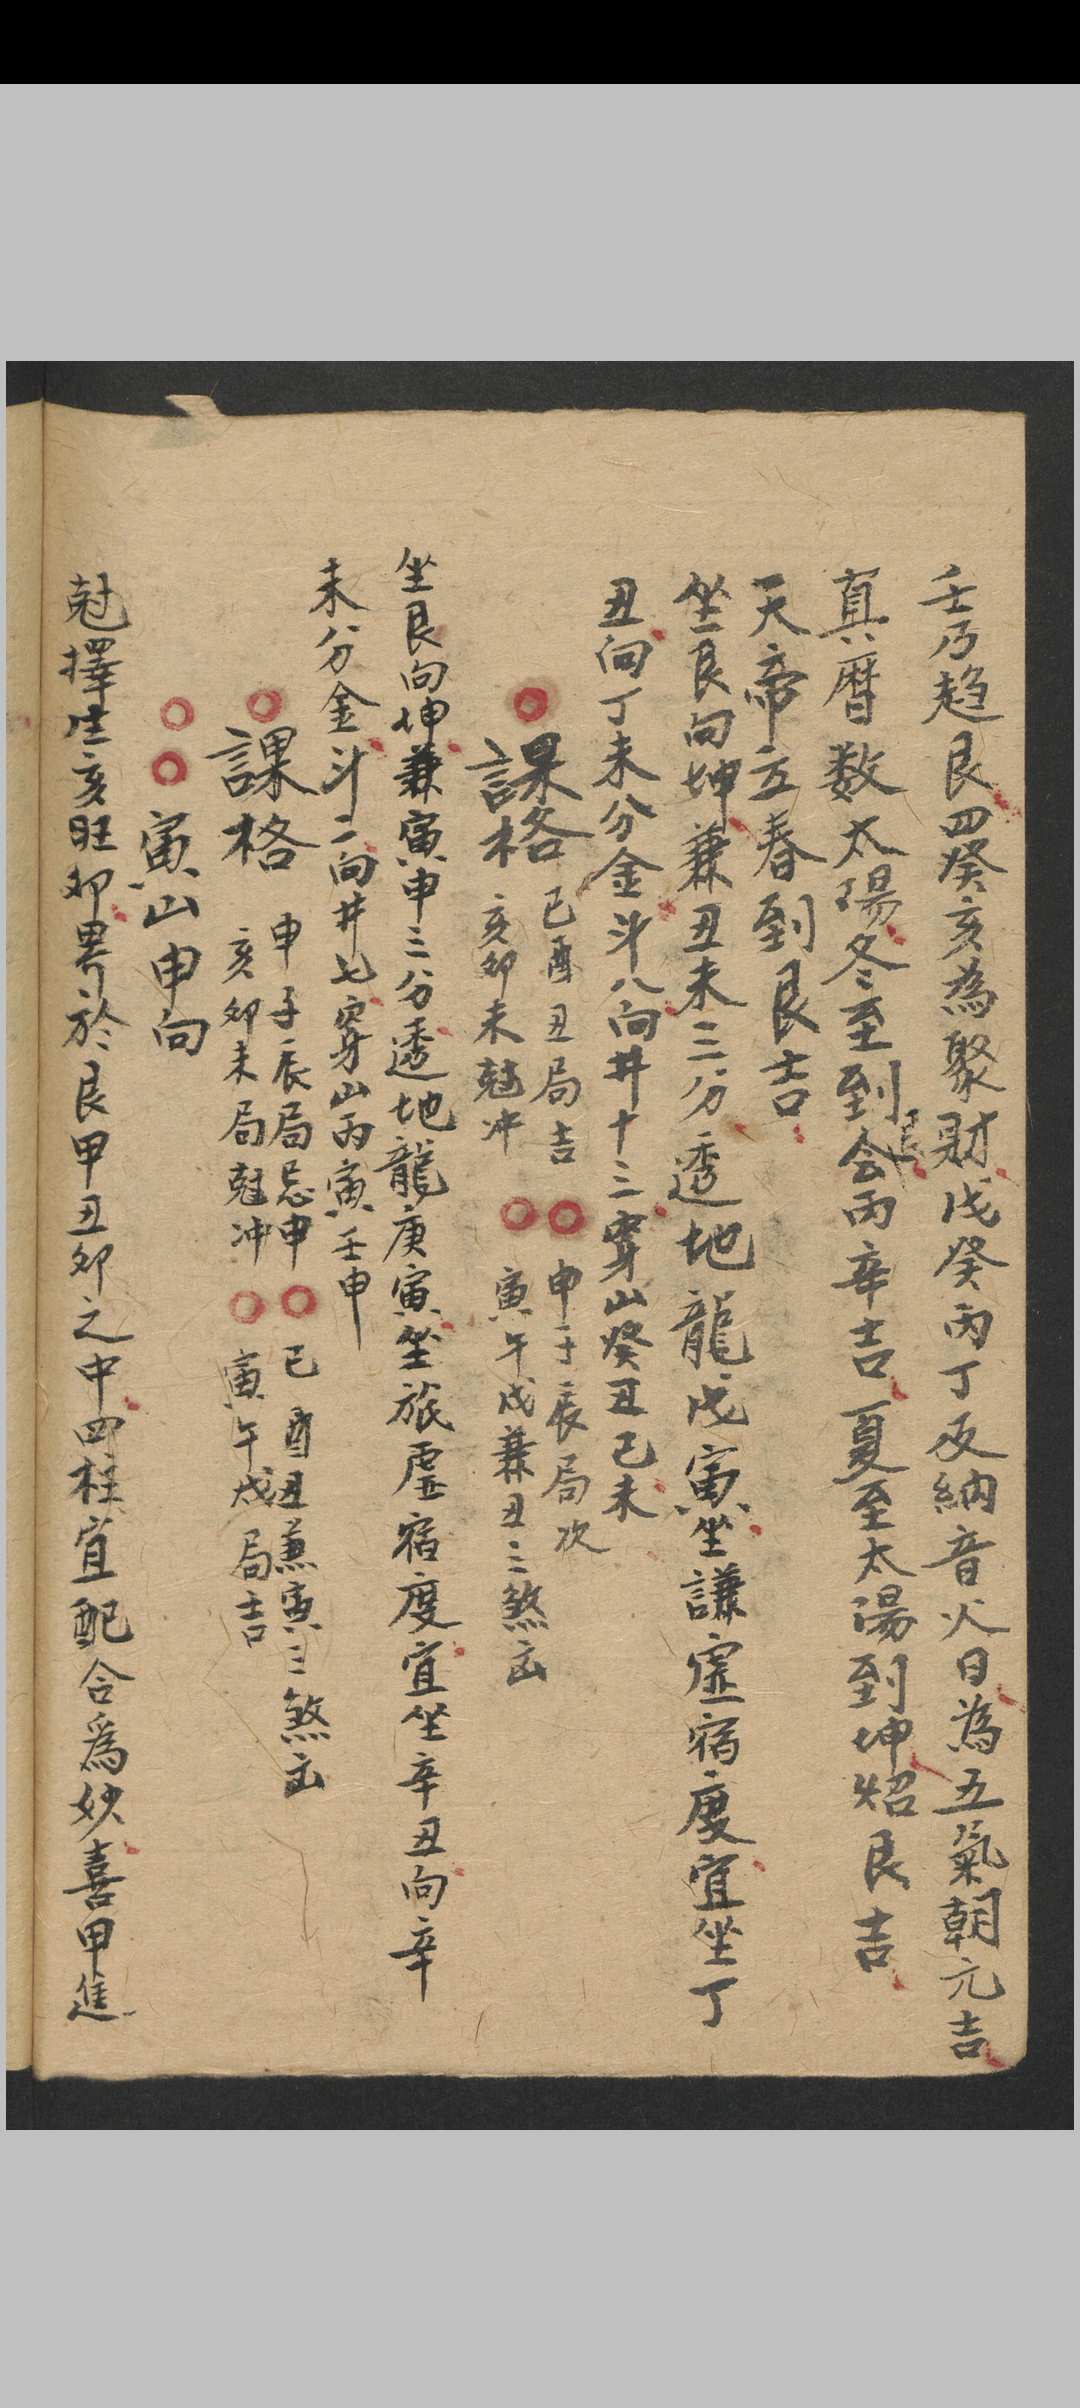 壬乃趋艮四癸亥為聚財戊癸丙丁及納音火日為五氣朝元吉
真曆数太陽冬至到艮会丙辛吉夏至太陽到坤炤艮吉
天帝立春到艮吉
坐艮向坤兼丑未三分透地龍戊寅坐謙虛宿度宜坐丁
丑向丁未分金斗八向井十三穿山癸丑己未
課格
巳酉丑局吉
亥卯未尅冲
申子辰局次
寅午戌兼丑三煞凶
坐艮向坤兼寅申三分透地龍庚寅坐旅虛宿度宜坐辛丑向辛
未分金斗二向井七穿山丙寅壬申
課格
申子辰局忌申
亥卯未局尅冲
巳酉丑兼寅三煞凶
寅午戌局吉
寅山申向
尅擇生亥旺卯界於艮甲丑卯之中四柱宜配合爲妙喜甲進